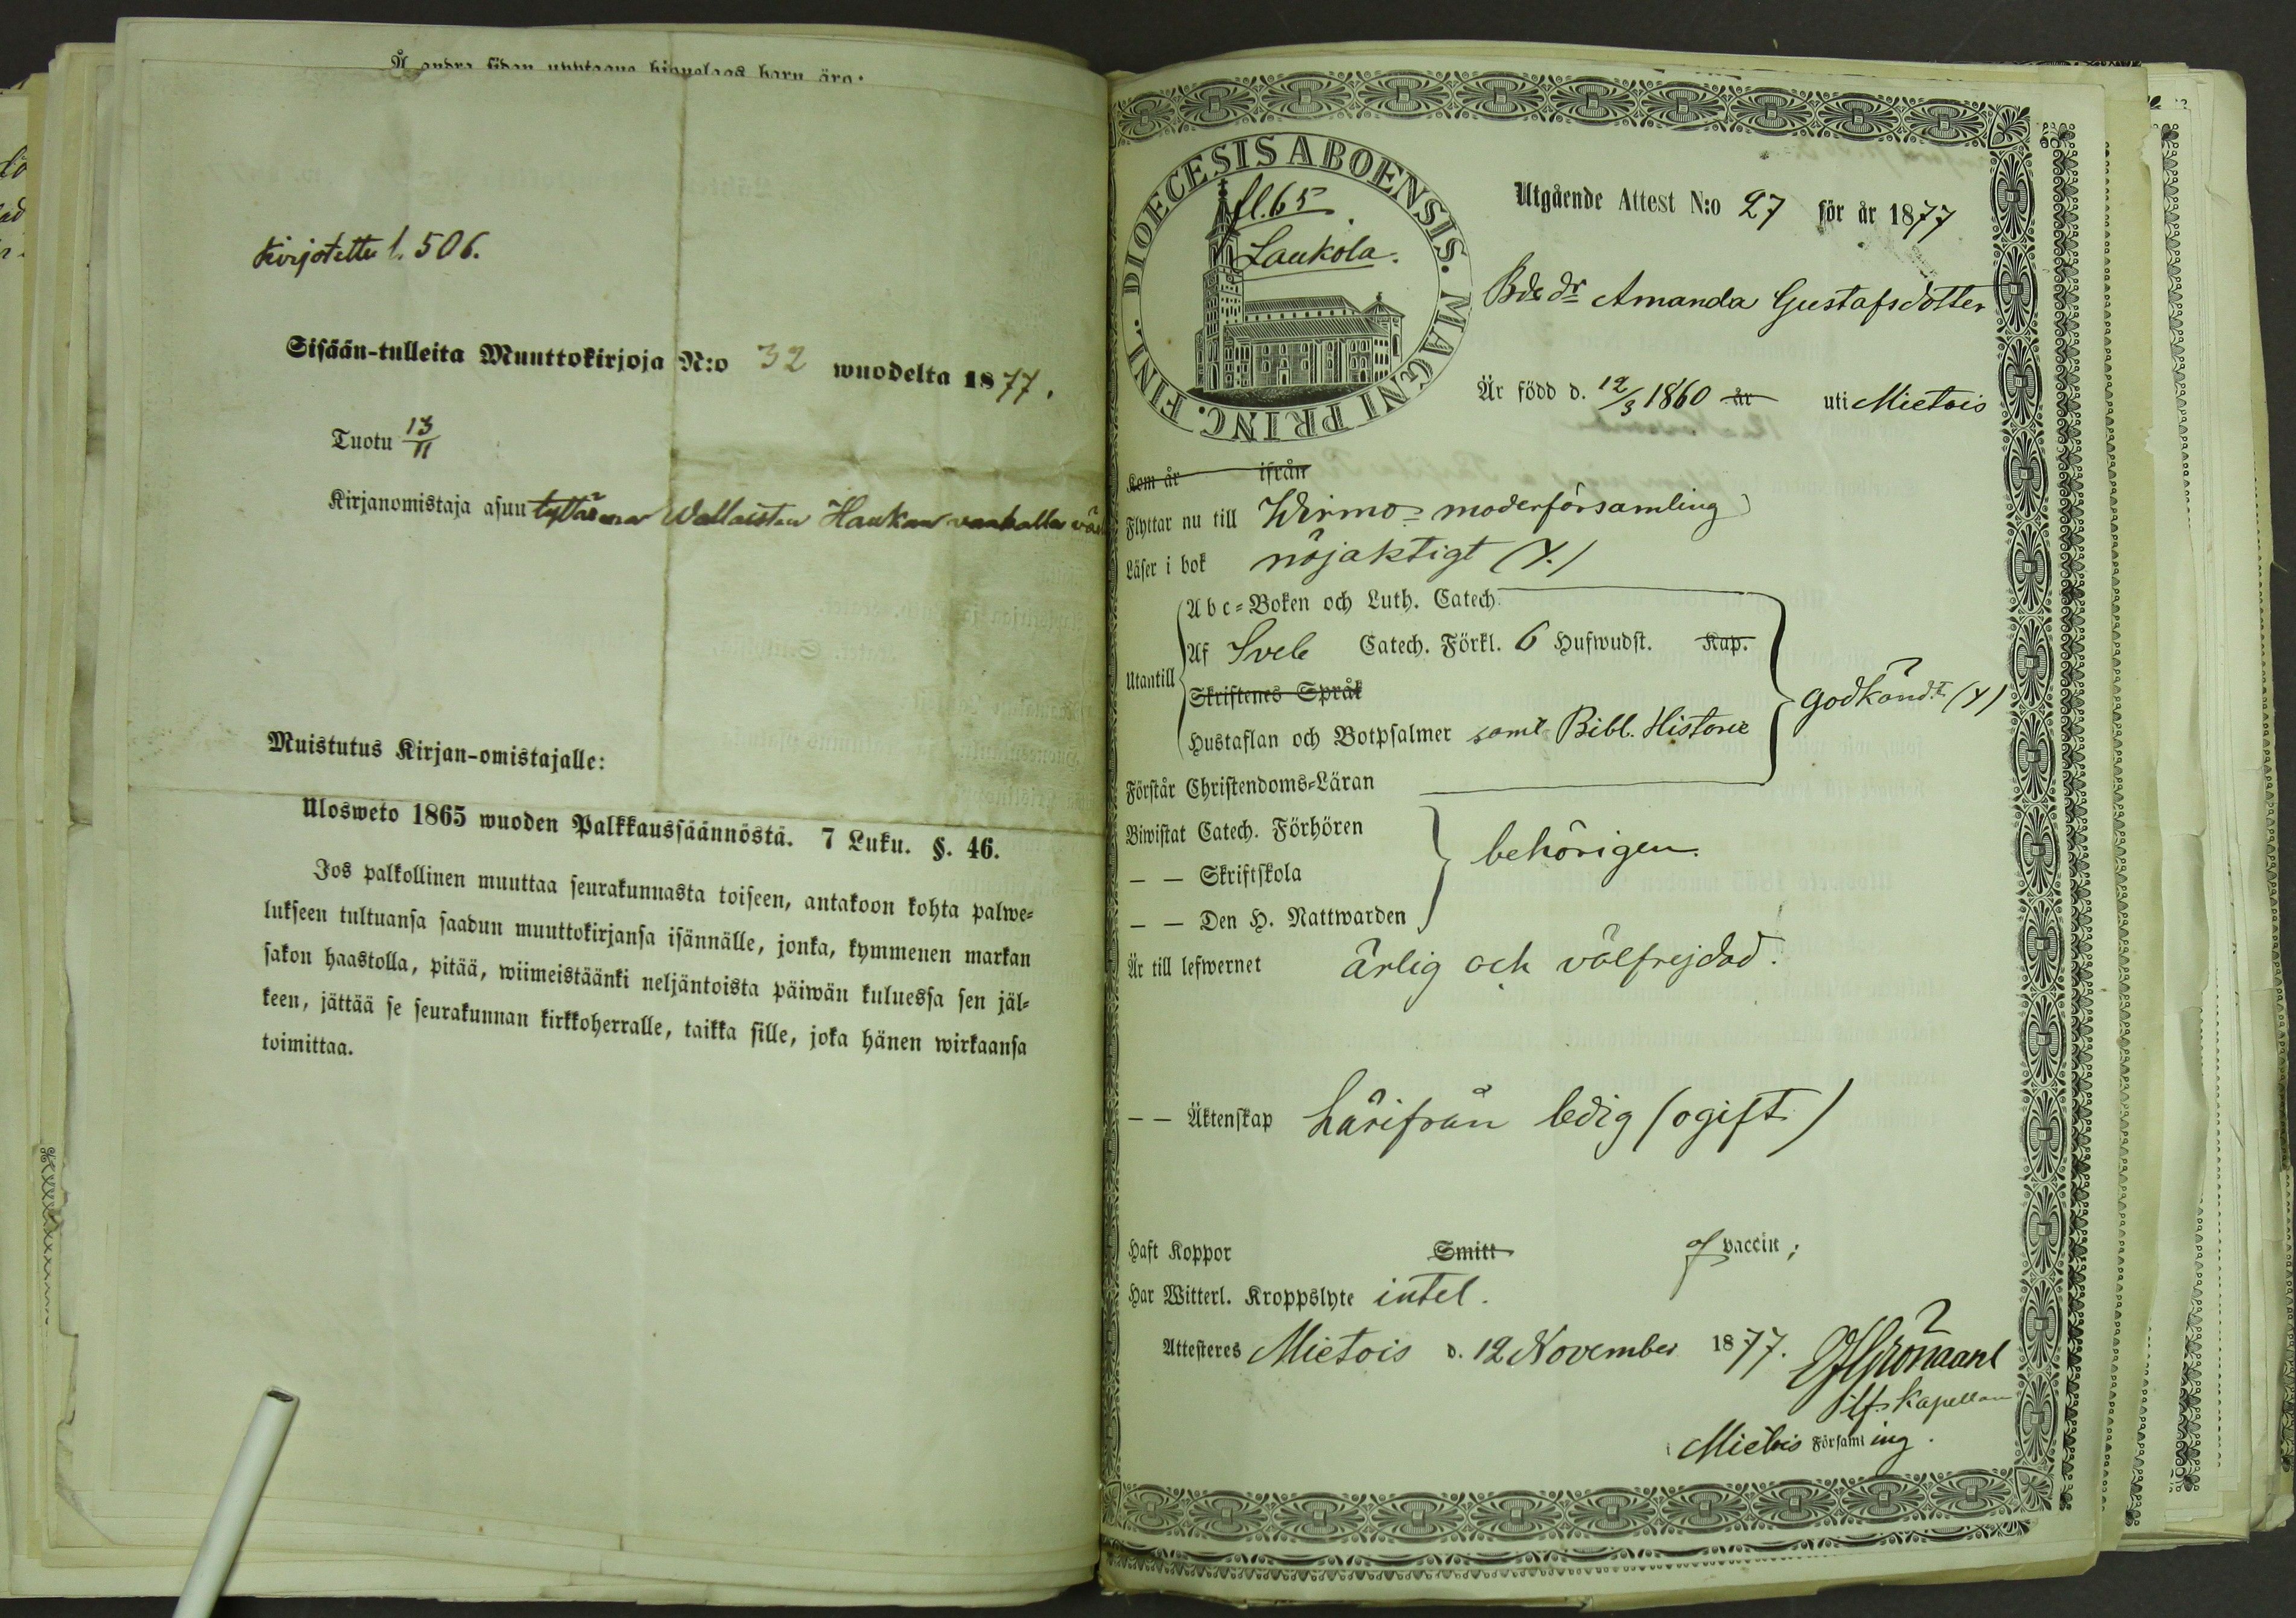 Å andra sidan upptagne hjonelags barn äro:
Kirjotettu l. 506.
Sisään-tulleita Muuttokirjoja N:o 32 wuodelta 1877.
Tuotu 13/11
Kirjanomistaja asuu tyttärenä Wallaisten Haukan
Muistutus Kirjan-omistajalle:
Ulosweto 1865 wuoden Palkkaussäännöstä. 7 Luku. §. 46.
Jos palkollinen muuttaa seurakunnasta toiseen, antakoon kohta palwe-
lukseen tultuansa saadun muuttokirjansa isännälle, jonka, kymmenen markan
sakon haastolla, pitää, wiimeistäänki neljäntoista päiwän kuluessa sen jäl-
keen, jättää se seurakunnan kirkkoherralle, taikka sille, joka hänen wirkaansa
toimittaa.
DIOECESIS ABOENSIS. MAGNI PRINC. FINL.
fl. 65
Laukola.
Utgående Attest N:o 27 för år 1877
Bde dr Amanda Gustafsdotter
Är född d. 12/3 1860 år uti Mietois
Kom år ifrån
Flyttar nu till Wirmo moderförsamling
Läser i bok nöjaktigt (y.)
Utantill
Abc-Boken och Luth. Catech.
Af Sveb Catech. Förkl. 6 Hufwudst. Kap.
Skriftenes Språk
Hustaflan och Botpsalmer samt Bibl. Historie
godkändt (y)
Förstår Christendoms-Läran
Biwistat Catech. Förhören
— — Skriftskola
behörigen.
— — Den H. Nattwarden
Är till lefwernet ärlig och välfrejdad.
— — Äktenskap härifrån ledig (ogift)
Haft Koppor Smitt af vaccin;
Har Witterl. Kroppslyte intet.
Attesteres Mietois d. 12 November 1877.
Kapellan
i Mietois Församling.